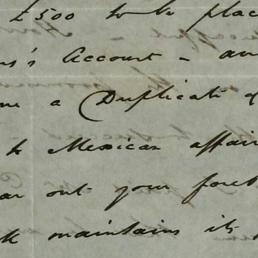 £500 to be plac
's Account - an
a Duplicate of
to Mexican affair
out your foret
maintains its